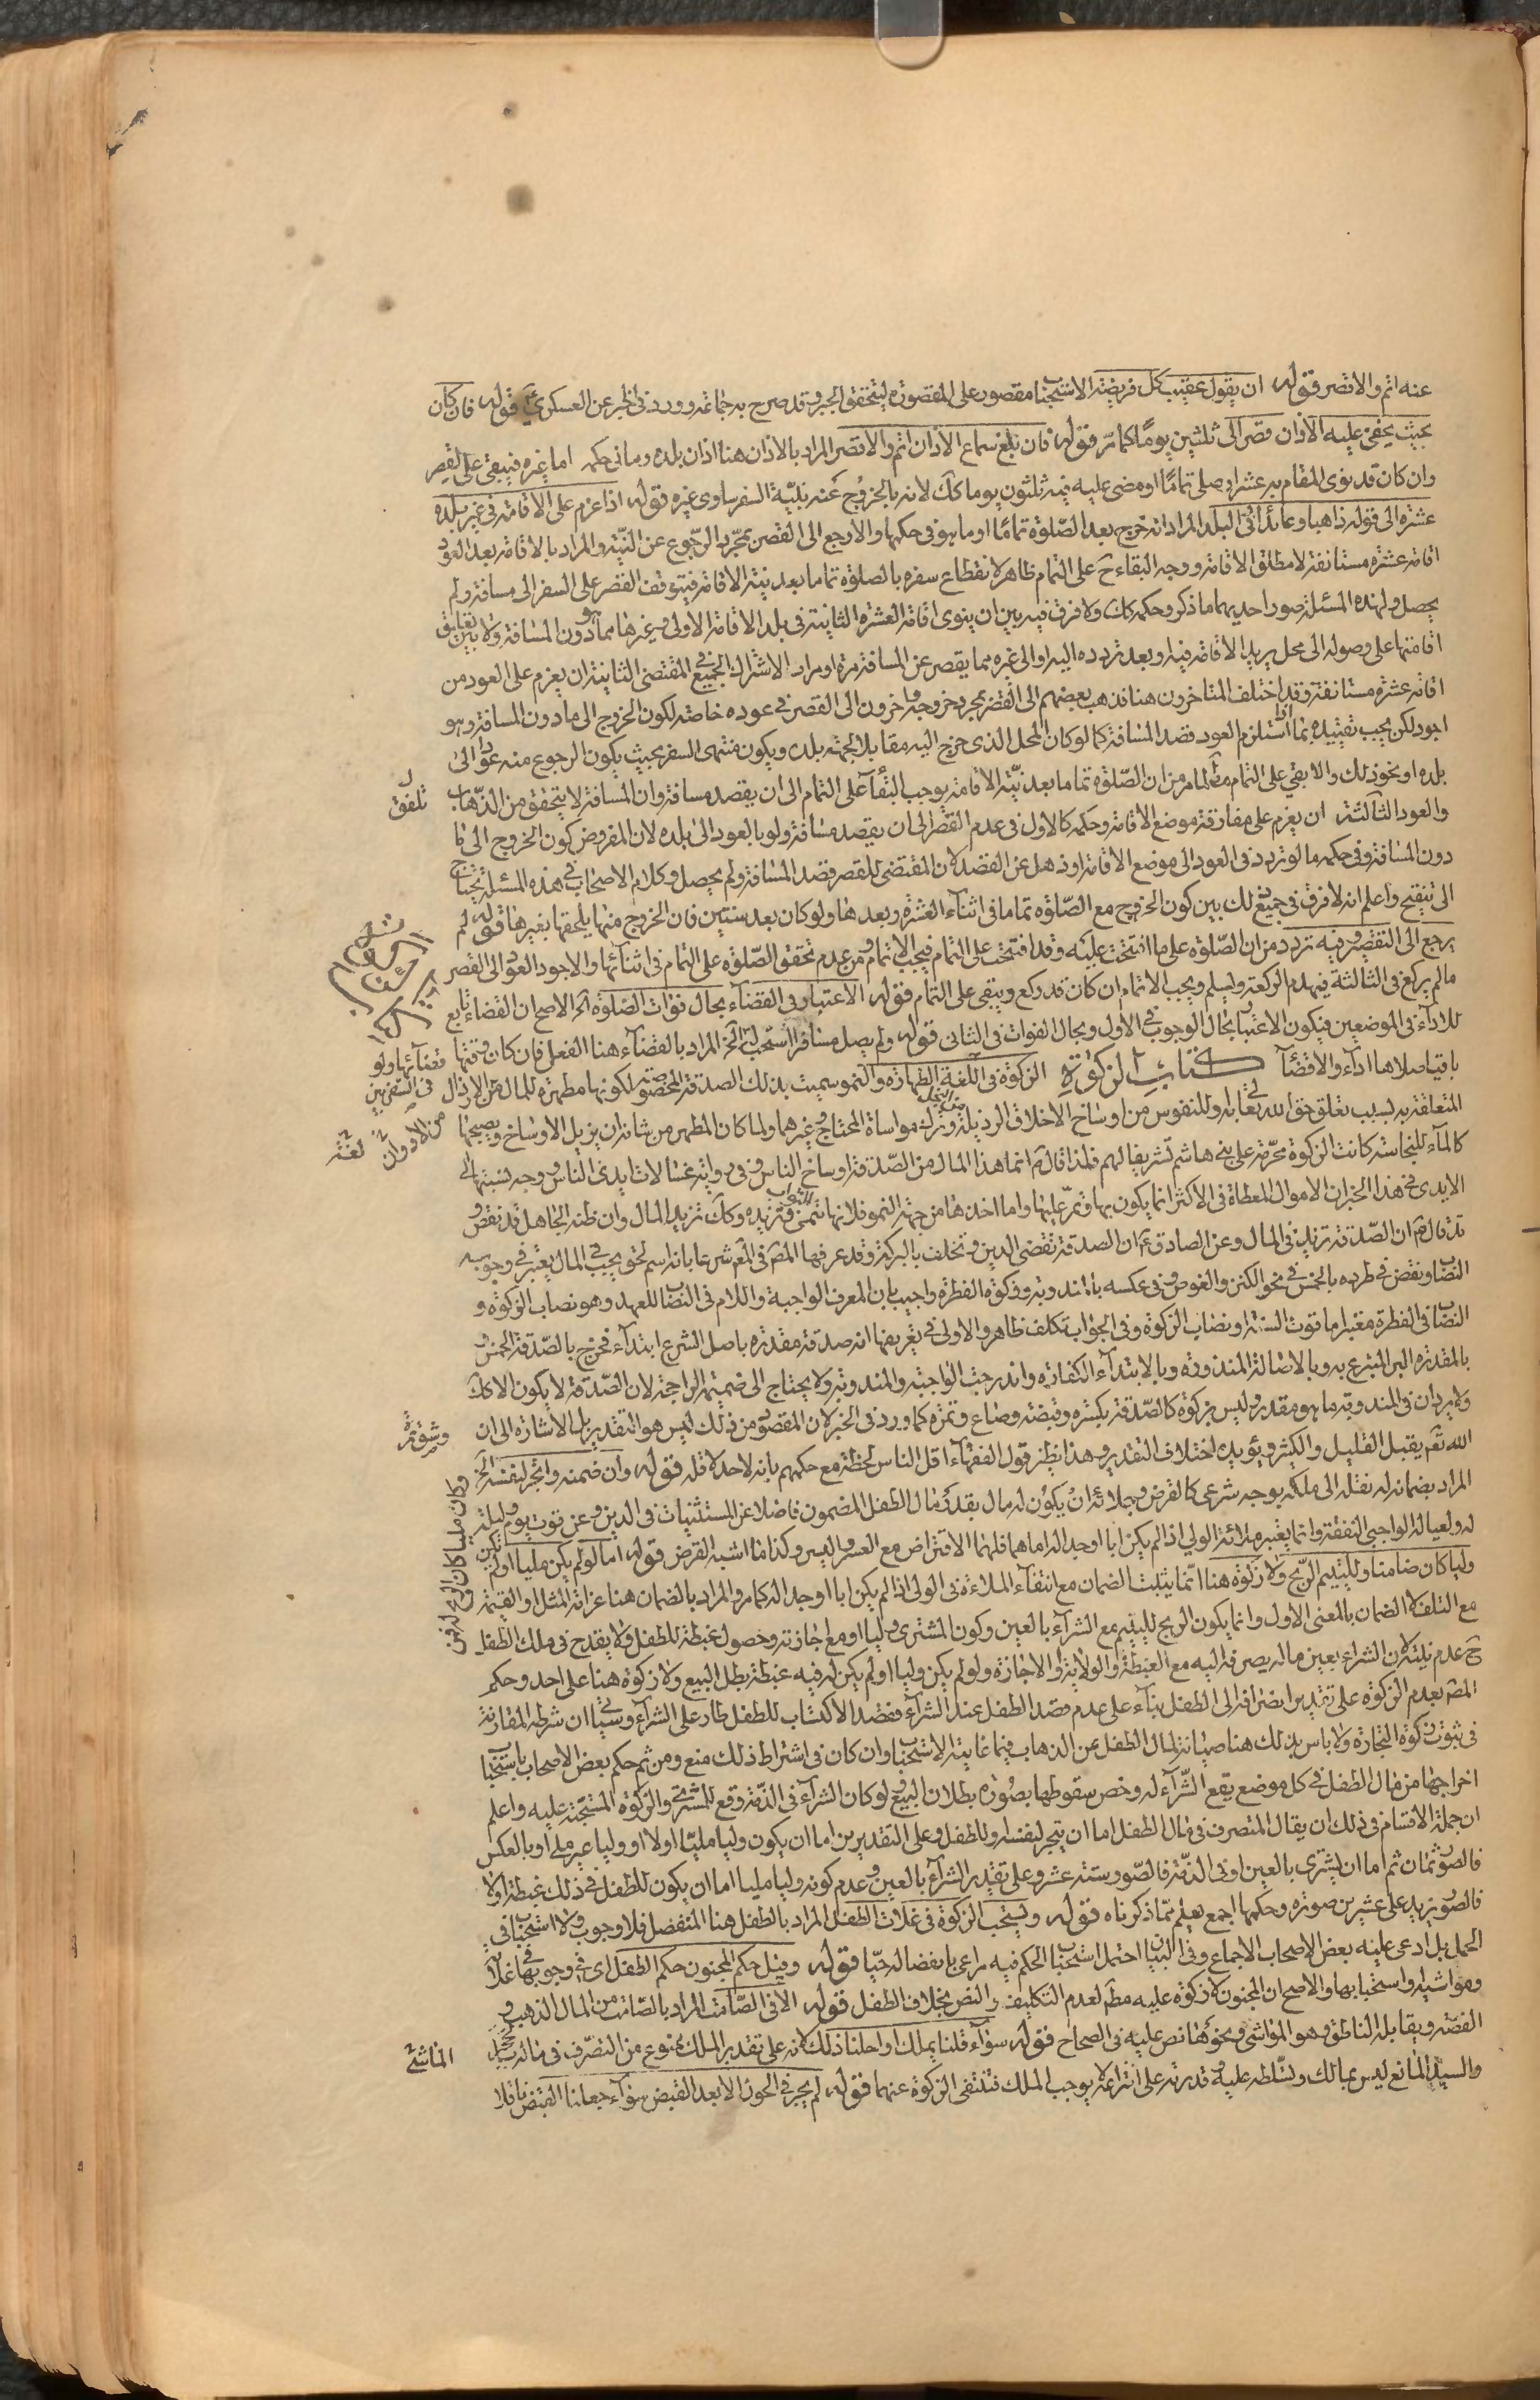 عنه اتم والا قصر قوله ان يقول عقيب كل فريضة الاستحباب مقصور على المقصورة ليتحقق الجبر وقد صرح به جماعة وورد في الخبر عن العسكري قوله فان كان
بحيث يخفى عليه الاذان قصر الى ثلثين يوما كما مر قوله فان بلغ سماع الاذان اتم والا قصر المراد بالاذان هنا اذان بلده وما في حكمه اما غيره فيبقى على القصر
وان كان قد نوى المقام به عشرا وصلى تماما او مضى عليه فيه ثلثون يوما كك لانه بالخروج عنه بنية السفر ساوى غيره قوله اذا عزم على الاقامة في غير بلده
عشرة الى قوله ذاهبا وعائدا في البلد المراد انه خرج بعد الصلوة تماما او ما هو في حكمها والا رجع الى القصر بمجرد الرجوع عن النية والمراد بالاقامة بعد العود
اقامة عشرة مستانفة لا مطلق الاقامة ووجه البقاء ح على التمام ظاهر لانقطاع سفره بالصلوة تماما بعد نية الاقامة فيتوقف القصر على السفر الى مسافة ولم
يحصل ولهذه المسئلة صور احديها ما ذكر وحكمه كك ولا فرق فيه بين ان ينوى اقامة العشرة الثانية في بلد الاقامة الاولى وغيرها مما هو دون المسافة ولا بين تعليق
اقامتها على وصوله الى محل يريد الاقامة فيه او بعد تردده اليه او الى غيره مما يقصر عن المسافة مرة او مرارا لاشتراك الجميع في المقتضى الثانية ان يعزم على العود من
اقامة عشرة مستانفة وقد اختلف المتاخرون هنا فذهب بعضهم الى القصر بمجرد خروجه واخرون الى القصر في عوده خاصة لكون الخروج الى ما دون المسافة وهو
اجود لكن يجب تقييده بما اذا استلزم العود قصد المسافة كما لو كان المحل الذي خرج اليه مقابلا لجهة بلده ويكون منتهى السفر بحيث يكون الرجوع منه عودا الى
بلده او نحو ذلك والا بقي على التمام مطلقا لما مر من ان الصلوة تماما بعد نية الاقامة يوجب البقاء على التمام الى ان يقصد مسافة وان المسافة لا يتحقق من الذهاب
والعود الثالثة ان يعزم على مفارقة موضع الاقامة وحكمه كالاول في عدم القصر الى ان يقصد مسافة ولو بالعود الى بلده لان المفروض كون الخروج الى ما
دون المسافة وفي حكمه ما لو تردد في العود الى موضع الاقامة او ذهل عن القصد لان المقتضى للقصر قصد المسافة ولم يحصل وكلام الاصحاب في هذه المسئلة يحتاج
الى تنقيح واعلم انه لا فرق في جميع ذلك بين كون الخروج مع الصلوة تماما في اثناء العشرة وبعدها ولو كان بعد سنتين فان الخروج منها يلحقها بغيرها قوله لم
يرجع الى التقصير وفيه تردد من ان الصلوة على ما افتتحت عليه وقد افتتحت على التمام فيجب الاتمام ومن عدم تحقق الصلوة على التمام في اثنائها والاجود العود الى القصر
ما لم يركع في الثالثة فيهدم الركعة ويسلم ويجب الاتمام ان كان قد ركع ويبقى على التمام قوله الاعتبار في القضاء بحال فوات الصلوة الخ الاصح ان القضاء تابع
للاداء في الموضعين فيكون الاعتبار بحال الوجوب في الاول وبحال الفوات في الثاني قوله ولم يصل مسافرا استحب له الخ المراد بالقضاء هنا الفعل فان كان وقتها
باقيا صلاها اداء والا قضاء كتاب الزكوة الزكوة في اللغة الطهارة والنمو وسميت بذلك الصدقة المخصوصة لكونها مطهرة للمال من الارذال
المتعلقة به بسبب تعلق حق الله تعالى به وللنفوس من اوساخ الاخلاق الرذيلة وترك مواساة المحتاج وغيرهما ولما كان المطهر من شانه ان يزيل الاوساخ ويصحبها
كالماء للنجاسة كانت الزكوة محرمة على بني هاشم تشريفا لهم فلذا قال انما هذا المال من الصدقة اوساخ الناس وفي رواية غسالات ايدى الناس ووجه نسبتها الى
الايدى في هذا الخبر ان الاموال المعطاة في الاكثر انما يكون بها وتمر عليها واما اخذها من جهة النمو فلانها تنمى الثواب وتزيده وكك تزيد المال وان ظنه الجاهل قد نقص و
قد قال ان الصدقة تزيد في المال وعن الصادق ان الصدقة تقضى الدين وتخلف بالبركة وقد عرفها المص في المعتبر شرعا بانه اسم لحق يجب في المال يعتبر في وجوبه
النصاب ونقض في طرده بالخمس في نحو الكنز والغوص وفي عكسه بالمندوبة وزكوة الفطرة واجيب بان المعرف الواجبة واللام في النصاب للعهد وهو نصاب الزكوة و
النصاب في الفطرة معتبر اما قوت السنة او نصاب الزكوة وفي الجواب تكلف ظاهر والاولى في تعريفها انه صدقة مقدرة باصل الشرع ابتداء فخرج بالصدقة الخمس و
بالمقدرة البر المتبرع به وبالاصالة المنذورة وبالابتداء الكفارة واندرجت الواجبة والمندوبة ولا يحتاج الى ضميمة الراجحة لان الصدقة لا يكون الا كك
ولا يرد ان في المندوبة ما هو مقدر وليس بزكوة كالصدقة بكسرة وقبضة وصاع وتمرة كما ورد في الخبر لان المقصود من ذلك ليس هو التقدير بل الاشارة الى ان
الله تعم يقبل القليل والكثير ويؤيده اختلاف التقدير وهذا نظير قول الفقهاء اقل الناس لحظة مع حكمهم بانه لا حد لاقله قوله وان ضمنه واتجر لنفسه الخ
المراد بضمانه له نقله الى ملكه بوجه شرعى كالقرض وبملائه ان يكون له مال بقدر مال الطفل المضمون فاضلا عن المستثنيات في الدين وعن قوت يوم وليلة
له ولعياله الواجبى النفقة وانما يعتبر ملائة الولى اذا لم يكن ابا او جدا له اما هما فلهما الاقتراض مع العسر واليسر وكذا ما اشبه القرض قوله اما لو لم يكن مليا او لم يكن
وليا كان ضامنا ولليتيم الربح ولا زكوة هنا انما يثبت الضمان مع انتفاء الملاءة في الولى اذا لم يكن ابا او جدا له كما مر والمراد بالضمان هنا غرامة المثل او القيمة
مع التلف لا الضمان بالمعنى الاول وانما يكون الربح لليتيم مع الشراء بالعين وكون المشترى وليا او مع اجازته وحصول غبطة للطفل ولا يقدح في ملك الطفل
ح عدم نيته لان الشراء بعين ماله يصرفه اليه مع الغبطة والولاية والاجازة ولو لم يكن وليا او لم يكن له فيه غبطة بطل البيع ولا زكوة هنا على احد وحكم
المص بعدم الزكوة على تقدير انصرافه الى الطفل بناء على عدم قصد الطفل عند الشراء فقصد الاكتساب للطفل طار على الشراء وسياتي ان شرطه المقارنة
في ثبوت زكوة التجارة ولا باس بذلك هنا صيانة لمال الطفل عن الذهاب فيما غايته الاستحباب وان كان في اشتراط ذلك منع ومن ثم حكم بعض الاصحاب باستحباب
اخراجها من مال الطفل في كل موضع يقع الشراء له وخص سقوطها بصورة بطلان البيع ولو كان الشراء في الذمة وقع للمشترى والزكوة المستحبة عليه واعلم
ان جملة الاقسام في ذلك ان يقال المتصرف في مال الطفل اما ان يتجر لنفسه او للطفل وعلى التقديرين اما ان يكون وليا مليا او لا او وليا غير ملى او بالعكس
فالصور ثمان ثم اما ان يشترى بالعين او في الذمة فالصور ستة عشر وعلى تقدير الشراء بالعين وعدم كونه وليا مليا اما ان يكون للطفل في ذلك غبطة او لا
فالصور تزيد على عشرين صورة وحكمها اجمع يعلم مما ذكرناه قوله ويستحب الزكوة في غلات الطفل المراد بالطفل هنا المنفصل فلا وجوب ولا استحباب في
الحمل بل ادعى عليه بعض الاصحاب الاجماع وفي البيان احتمل استحباب الحكم فيه مراعى بانفصاله حيا قوله وقيل حكم المجنون حكم الطفل اى في وجوبها في غلاته
ومواشيه واستحبابها والاصح ان المجنون لا زكوة عليه مطلقا لعدم التكليف والنص بخلاف الطفل قوله الا في الصامت المراد بالصامت من المال الذهب و
الفضة ويقابله الناطق وهو المواشي ونحوها نص عليه في الصحاح قوله سواء قلنا يملك او احلنا ذلك لانه على تقدير الملك ممنوع من التصرف في ماله
والسيد المانع ليس بمالك وتسلطه عليه وقدرته على انتزاعه لا يوجب الملك فتنتفى الزكوة عنهما قوله لم يجر في الحول الا بعد القبض سواء جعلنا القبض ناقلا
تلفق
الماشي